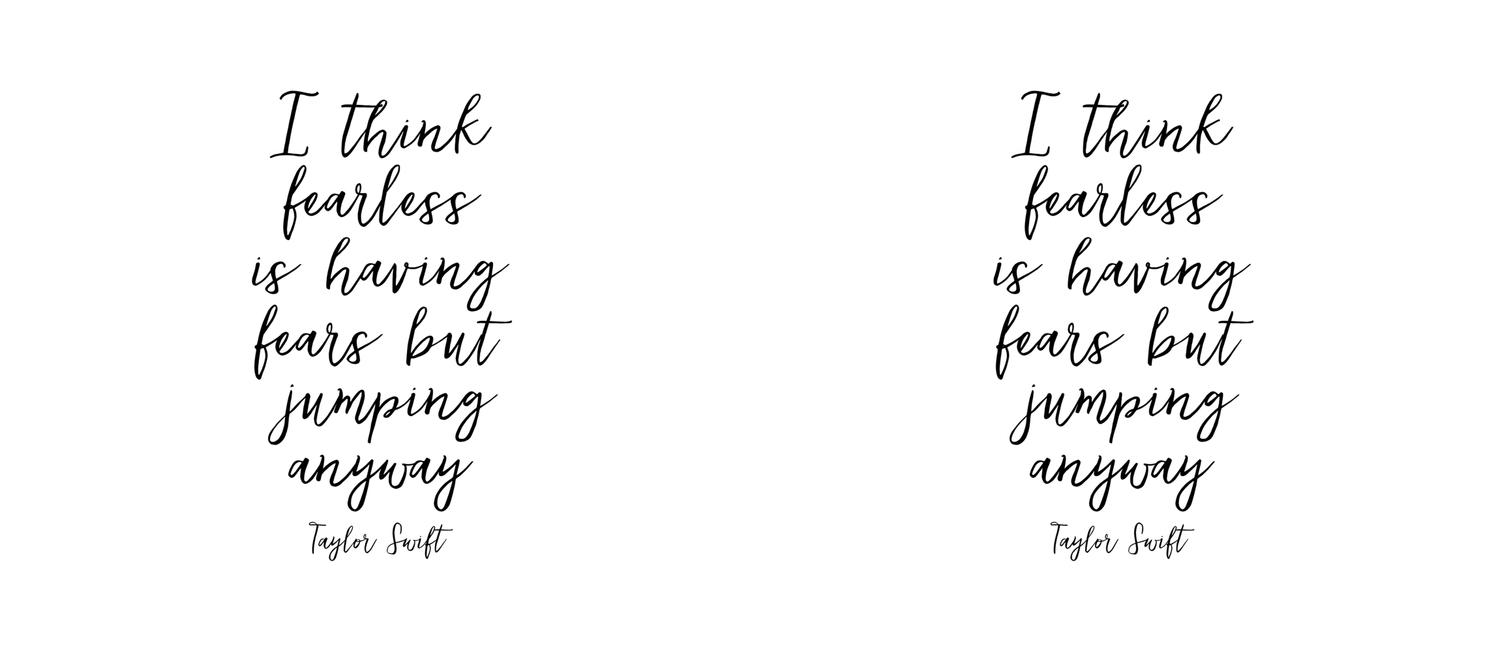 I think
fearless
is having
fears but
jumping
anyway
Taylor Swift
I think
fearless
is having
fears but
jumping
anyway
Taylor Swift